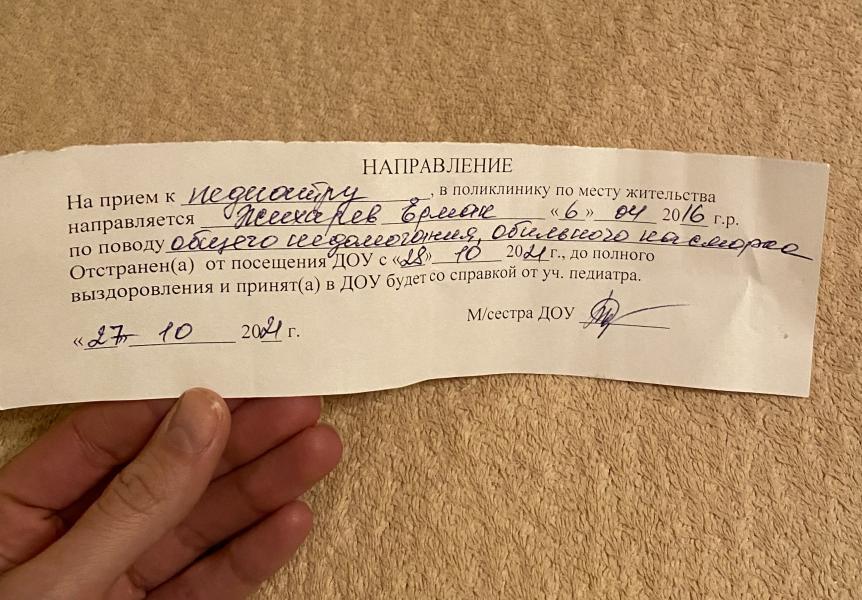 НАПРАВЛЕНИЕ
На прием к педиатру, в поликлинику по месту жительства
направляется Жихарев Ермак «6» 04 2016 г.р.
по поводу общего недомогания, обильного насморка
Отстранен(а) от посещения ДОУ с «28» 10 2021 г., до полного
выздоровления и принят(а) в ДОУ будет со справкой от уч. педиатра.
М/сестра ДОУ
«27» 10 2021 г.